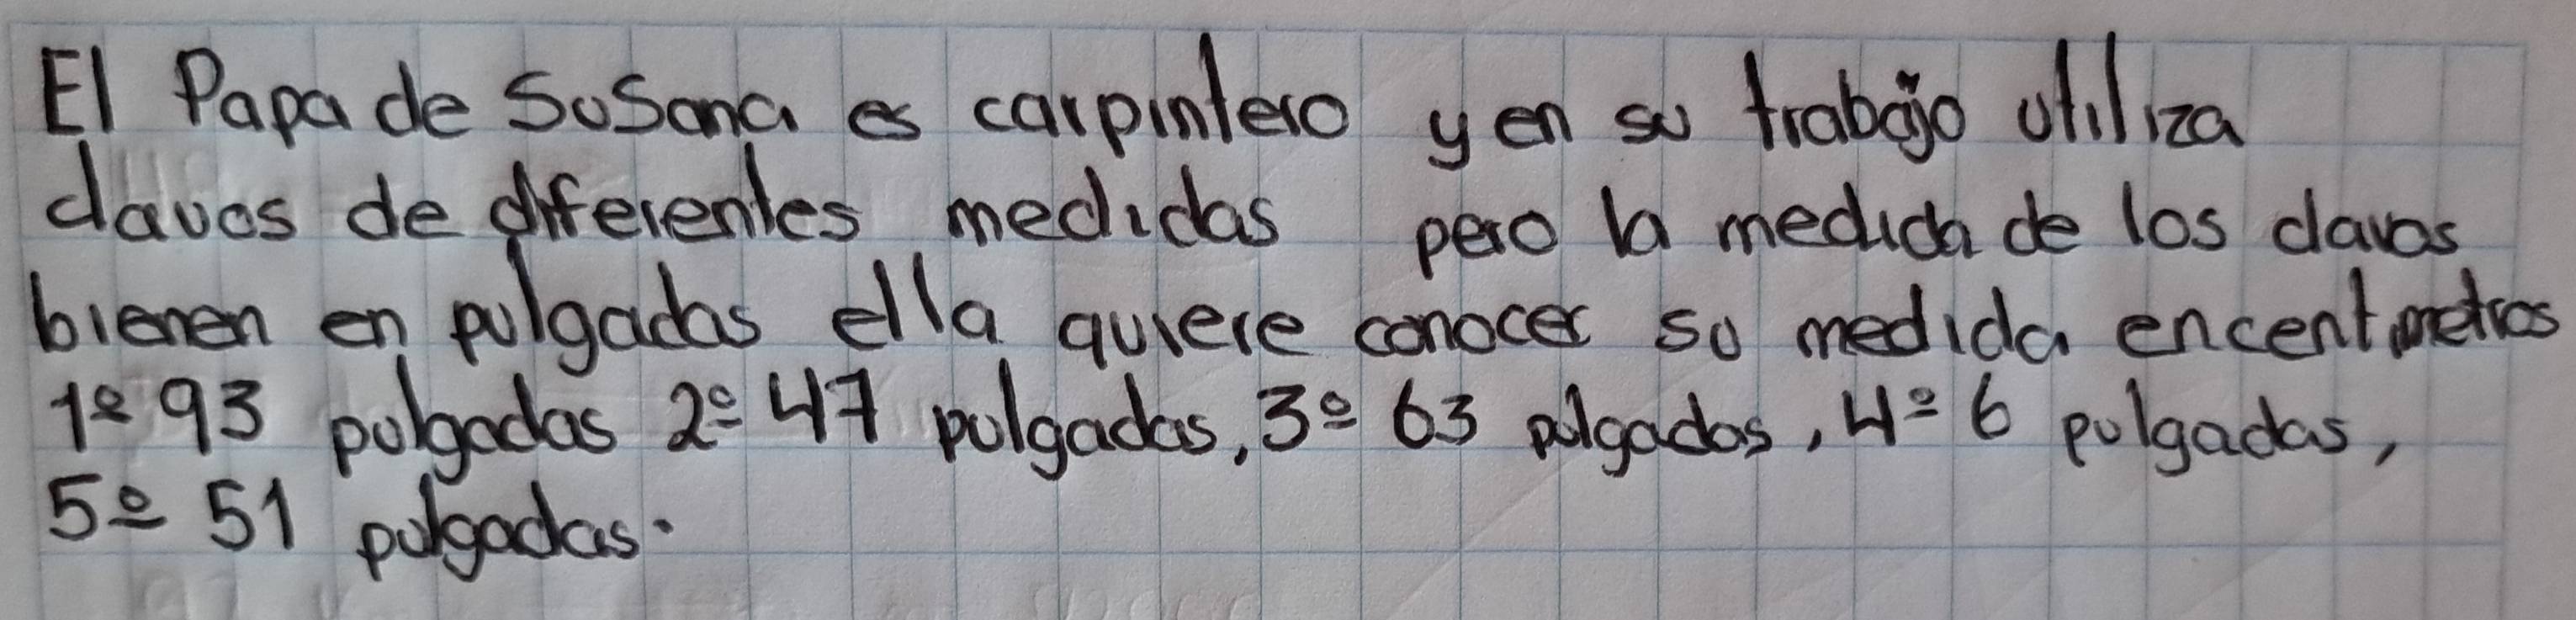 El Papa de Susana es carpintero y en su trabajo utiliza
clavos de diferentes medidas pero la medida de los clavos
bienen en pulgadas ella quiere conocer su medida encentimetros
1º 93 pulgadas 2º 47 pulgadas, 3º 63 pulgadas, 4º 6 pulgadas,
5º 51 pulgadas.